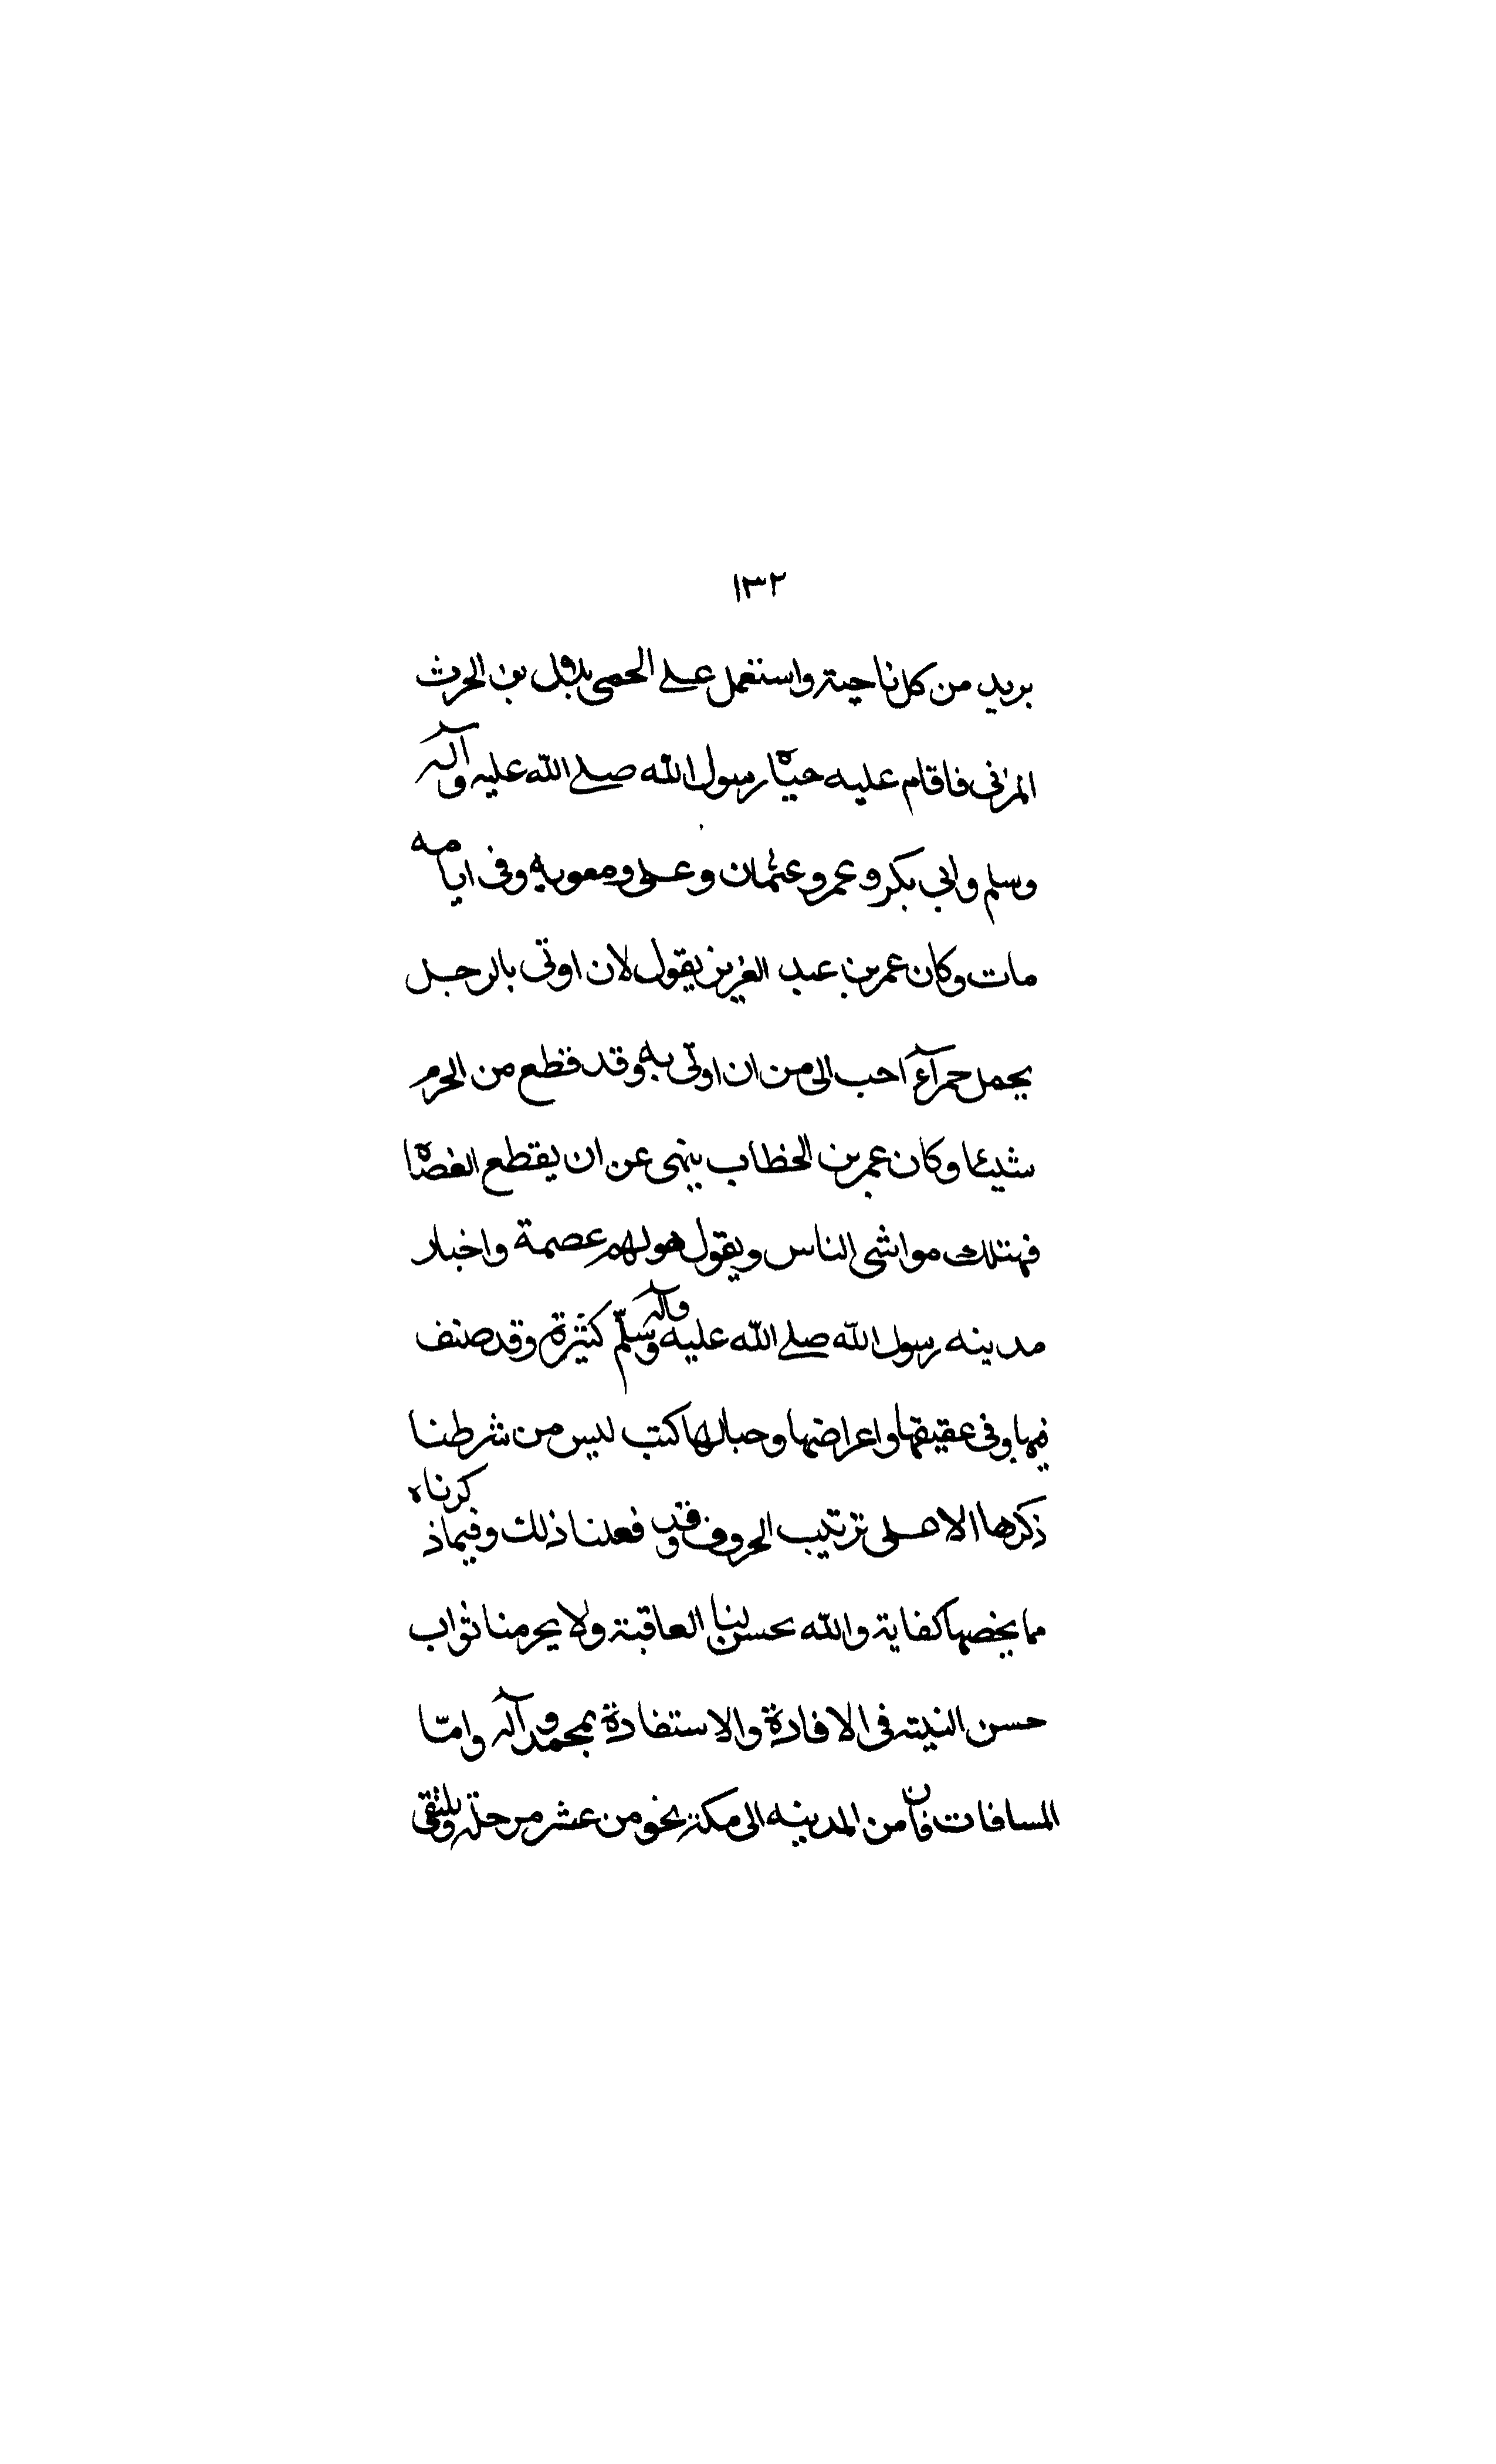 ١٣٢
بريد من كل ناحية واستعمل على الحمى بلال بن الحرث
المزنى فاقام عليه حياة رسول الله صلى الله عليه وآله
وسلم وابى بكر وعمر وعثمان وعلى ومعوية وفى ايامه
مات وكان عمر بن عبد العزيز يقول لان اوتى بالرجل
يحمل حمرآء احب الى من ان اوتى به وقد قطع من الحرم
شيئا وكان عمر بن الخطاب ينهى عن ان يقطع العضاة
فهتلك مواشى الناس ويقول هو لهم عصمة واخبار
مدينه رسول الله صلى الله عليه وآله وسلّم كثيرة وقد صنف
فيها وفى عقيقها واعراضها وحبالها كتب ليس من شرطنا
ذكرها الا على ترتيب الحروف وقد فعلنا ذلك وفيما ذكرناه
مما يخصها كفاية والله يحسن لنا العاقبة ولا يحرمنا ثواب
حسن النية فى الافادة والاستفادة بمحمد وآله وامّا
المسافات فان من المدينه الى مكة نحو من عشر مرحلة ويلتقى